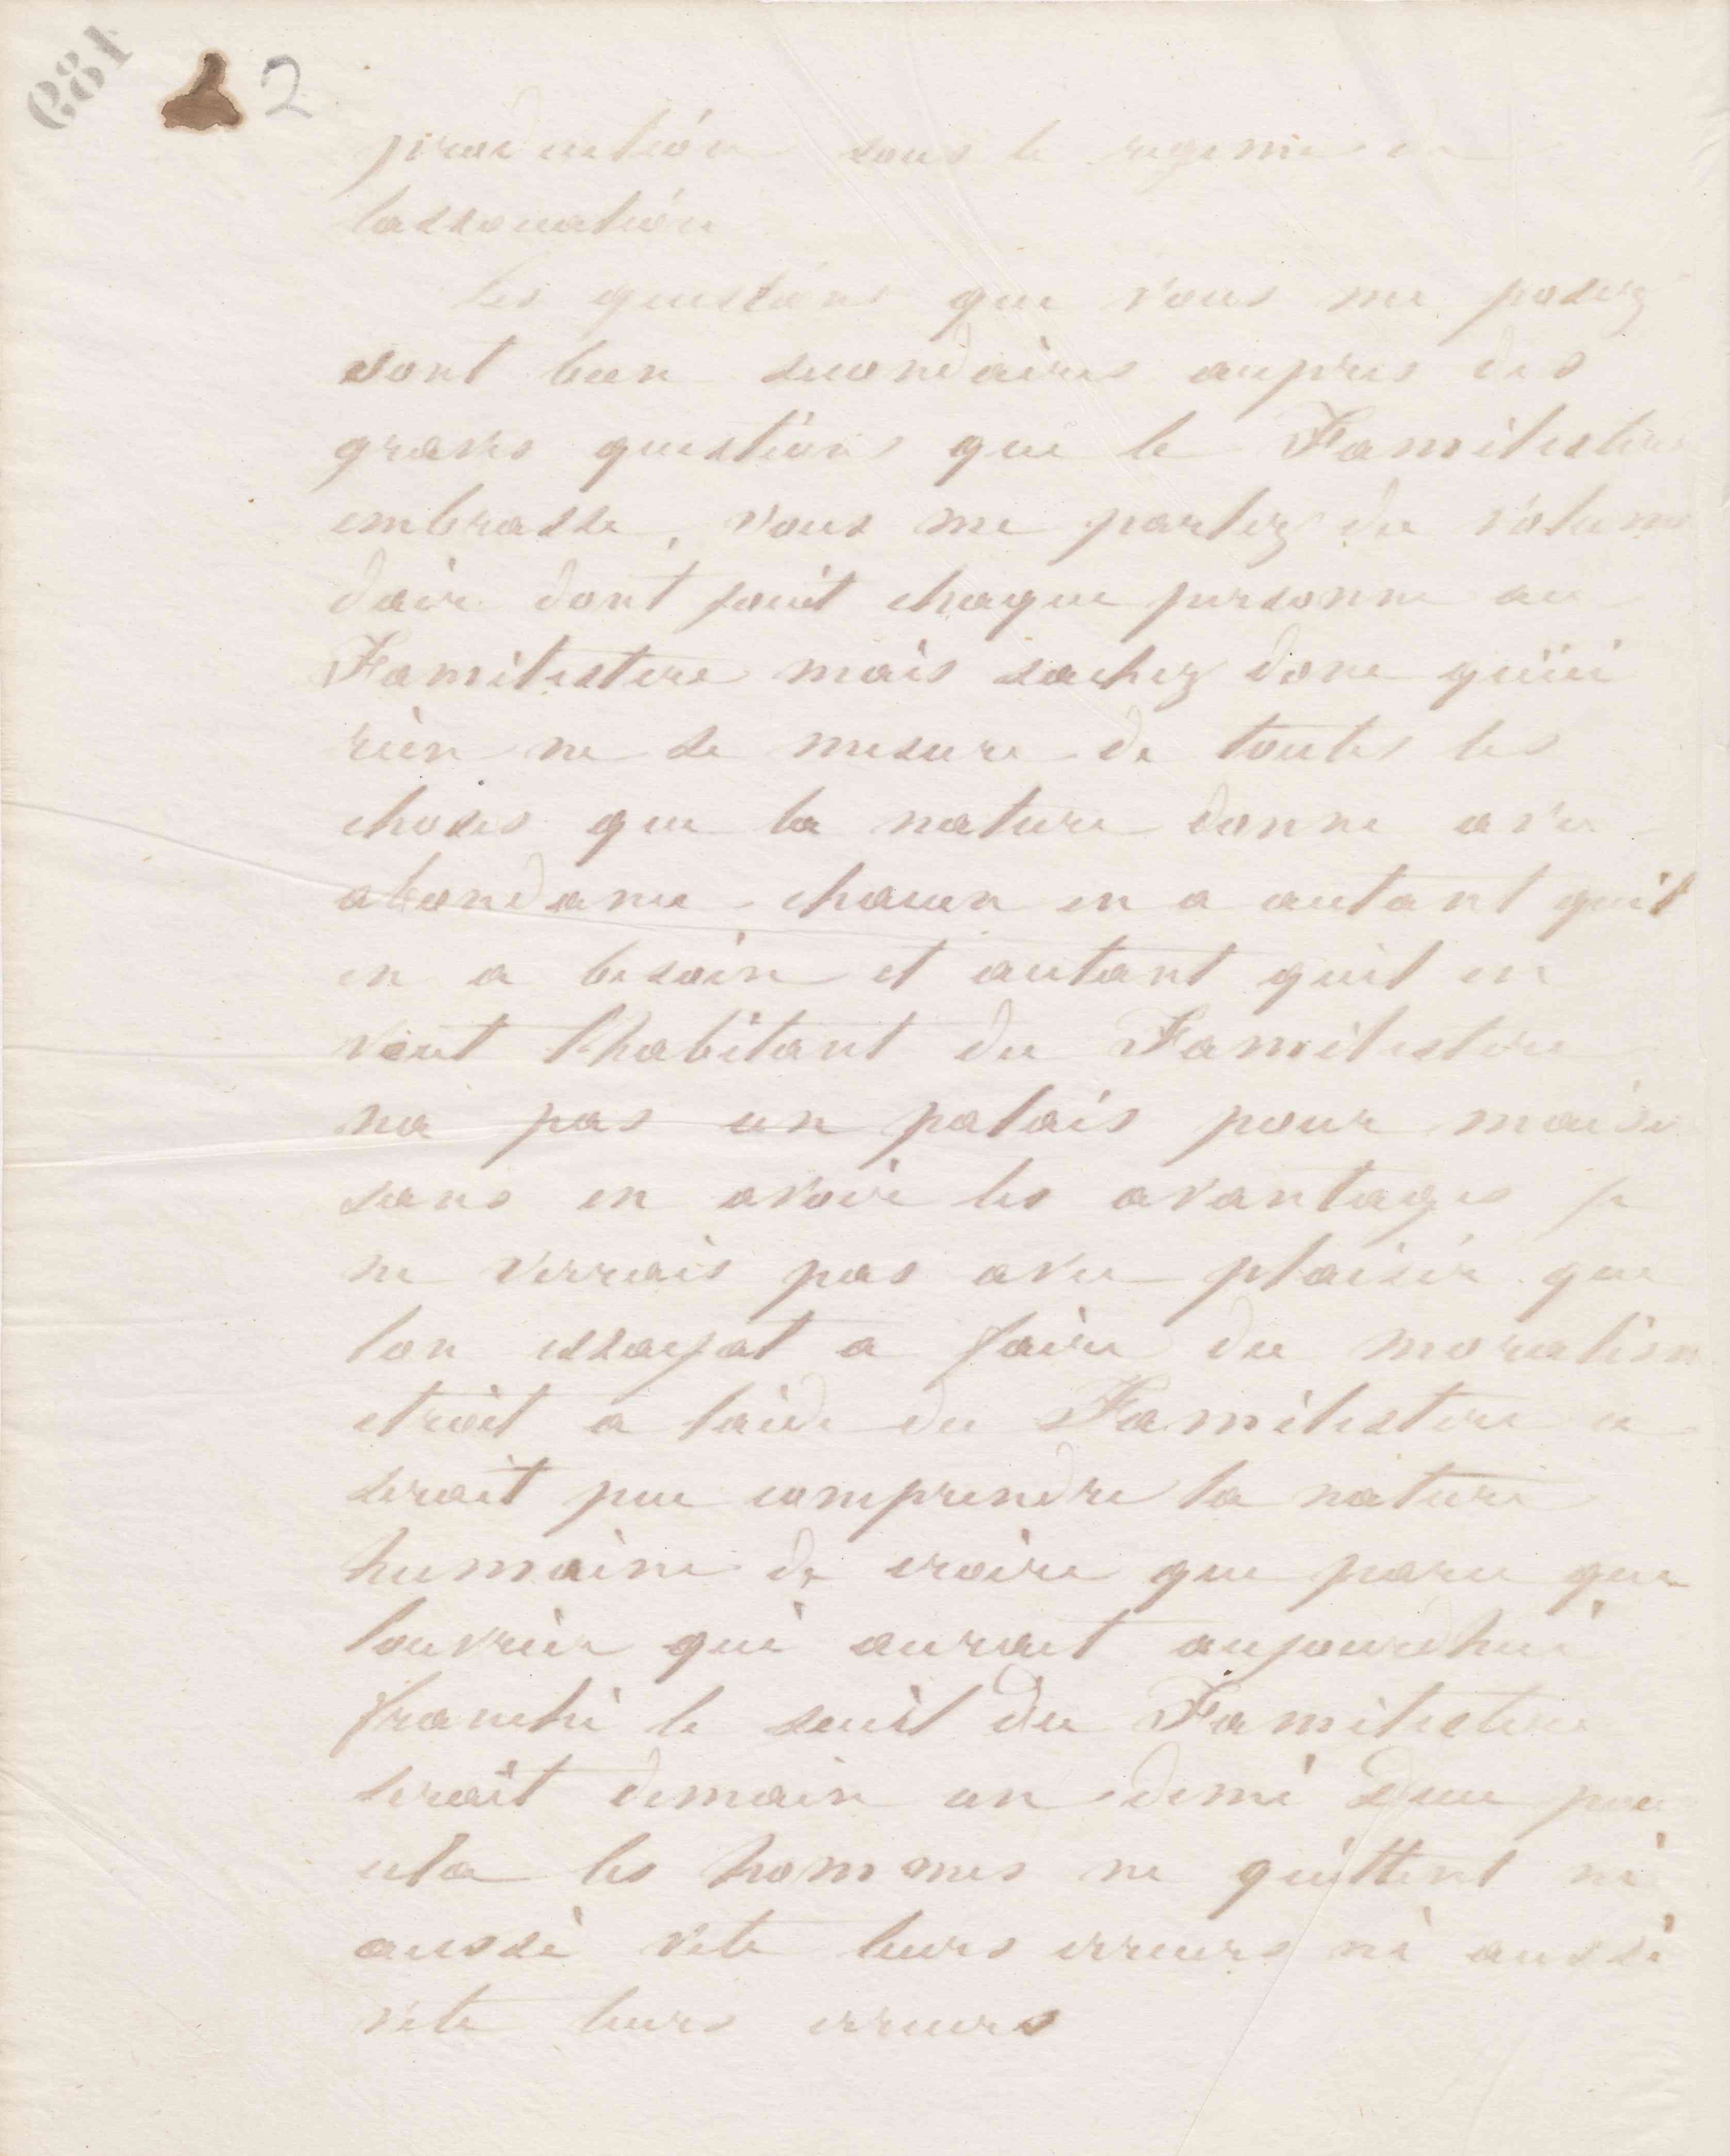 189
2
production sous le regime de
lassociation
Les questions que vous me posez
sont bien secondaires aupres des
graves questions que le Familistere
embrasse, vous me parlez du volume
dair dont jouit chaque personne au
Familistere mais sachez donc quici
rien ne se mesure de toutes les
choses que la nature donne avec
abondance chacun en a autant quil
en a besoin et autant quil en
veut lhabitant du Familistere
na pas un palais pour maison
sans en avoir les avantages je
ne verrais pas avec plaisir que
lon essayat a faire du moralisme
etroit a laide du Familistere ce
serait peu comprendre la nature
humaine de croire que parce que
louvrier qui aurait aujourdhui
franchi le seuil du Familistere
serait demain un demi Dieu pour
cela les hommes ne quittent ni
aussi vite leurs erreurs ni aussi
vite leurs erreurs